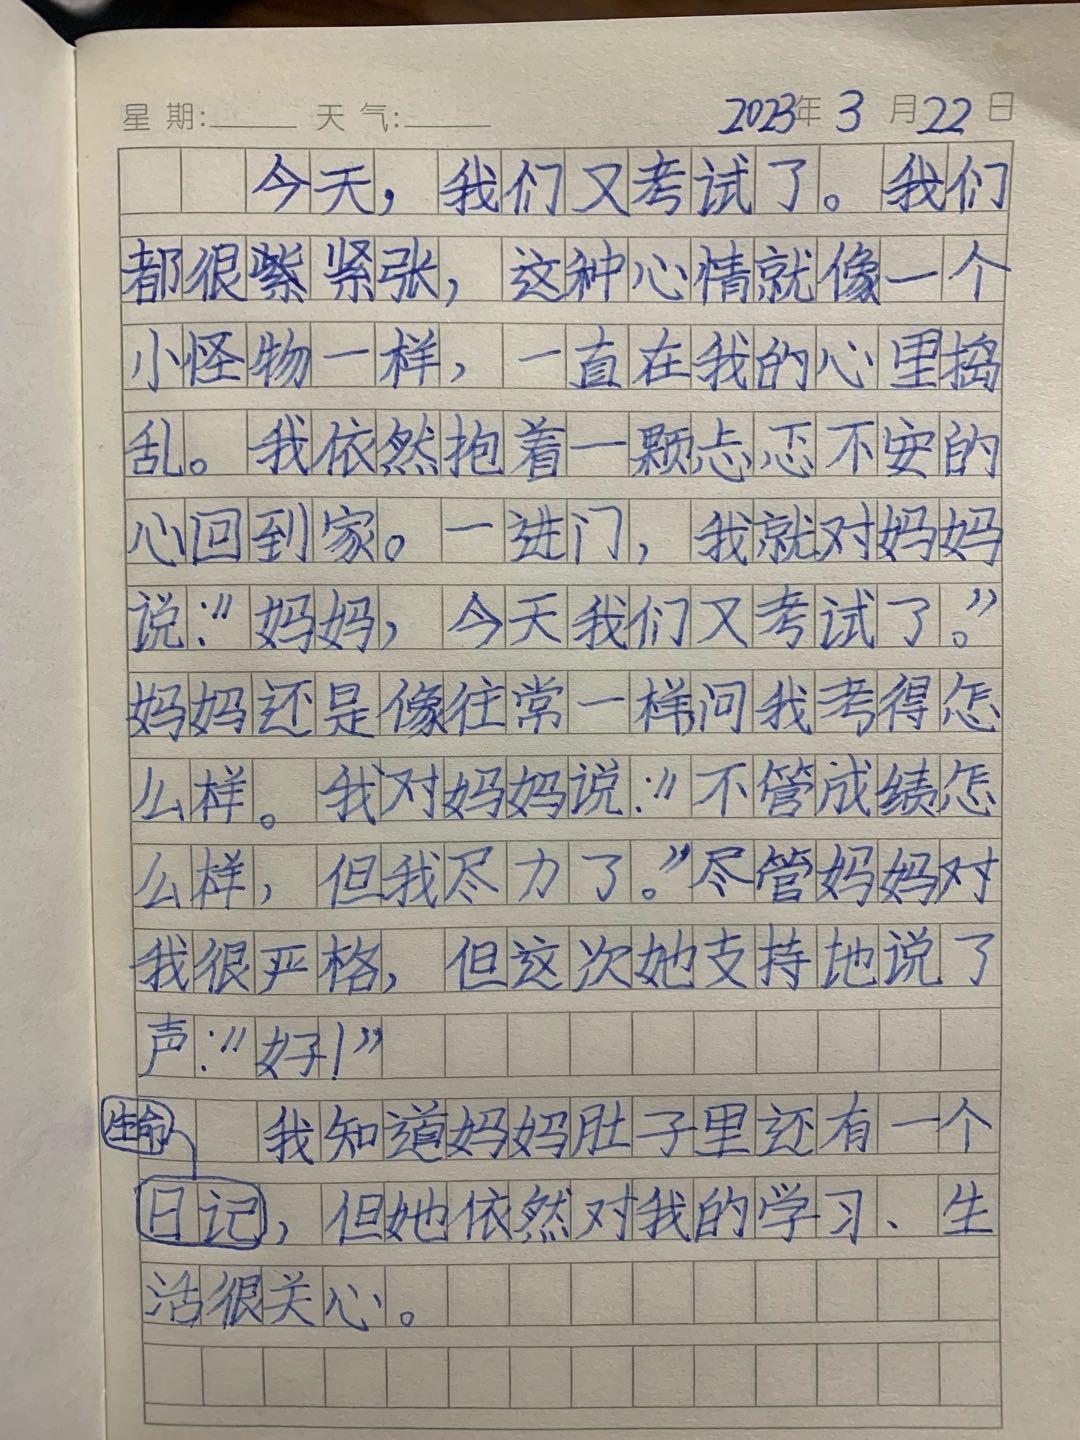 星期: 天气: 2023年3月22日
今天，我们又考试了。我们
都很紫紧张，这种心情就像一个
小怪物一样，一直在我的心里捣
乱。我依然抱着一颗忐忑不安的
心回到家。一进门，我就对妈妈
说："妈妈，今天我们又考试了。"
妈妈还是像往常一样问我考得怎
么样。我对妈妈说："不管成绩怎
么样，但我尽力了。"尽管妈妈对
我很严格，但这次她支持地说了
声："好！"
生命 我知道妈妈肚子里还有一个
日记，但她依然对我的学习、生
活很关心。